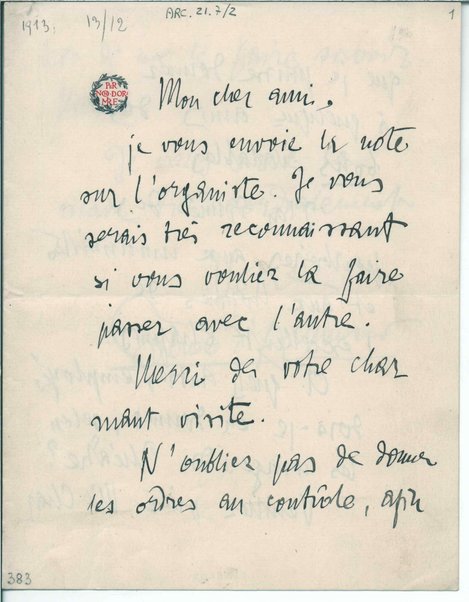 1913. 13/12 ARC. 21.7/2 1
PER
NON DOR
MIRE
Mon cher ami.
je vous envoie la note
sur l'organiste. Je vous
serais très reconnaissant
si vous vouliez la faire
passer avec l'autre.
Merci de votre char
mant visite.
N'oubliez pas de donner
les ordres au contrôle, afin
383